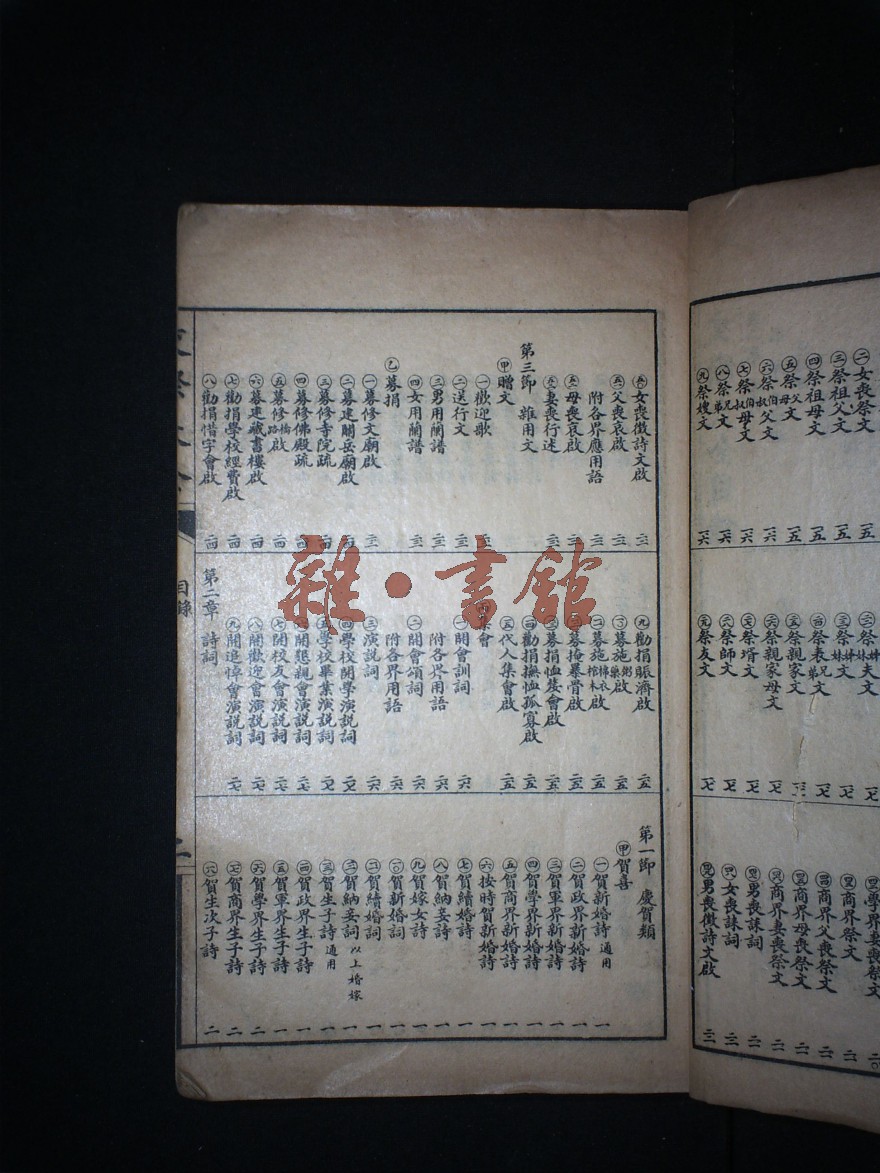 二女喪祭文
三祭祖父文
四祭祖母文
五祭父母文
六祭伯叔父文
七祭伯叔母文
八祭兄弟文
九祭嫂文
祭姊妹夫文
祭姊妹文
祭表兄弟文
祭親家文
祭親家母文
祭壻文
祭師文
祭友文
學界妻喪祭文
商界祭文
商界父喪祭文
商界母喪祭文
商界妻喪祭文
男喪誄詞
女喪誄詞
男喪徵詩文啟
女喪徵詩文啟
父喪哀啟
附各界應用語
母喪哀啟
妻喪行述
第三節 雜用文
甲贈文
一歡迎歌
二送行文
三男用蘭譜
四女用蘭譜
乙募捐
一募修文廟啟
二募建關岳廟啟
三募修寺院疏
四募修佛殿疏
五募修橋路啟
六募建藏書樓啟
七勸捐學校經費啟
八勸捐惜字會啟
九勸捐賑濟啟
募施粥藥啟
募施棉衣棺木啟
募掩暴骨啟
募捐恤嫠會啟
勸捐撫恤孤寡啟
代人集會啟
集會
一開會訓詞
附各界用語
二開會頌詞
附各界用語
三演説詞
四學校開學演説詞
五學校畢業演説詞
六開懇親會演説詞
七開校友會演説詞
八開歡迎會演説詞
九開追悼會演説詞
第二章 詩詞
第一節 慶賀類
甲賀喜
一賀新婚詩通用
二賀政界新婚詩
三賀軍界新婚詩
四賀學界新婚詩
五賀商界新婚詩
六按時賀新婚詩
七賀續婚詩
八賀納妾詩
九賀嫁女詩
賀新婚詞
賀續婚詞
賀納妾詞以上婚嫁
賀生子詩通用
賀政界生子詩
賀軍界生子詩
賀學界生子詩
賀商界生子詩
賀生次子詩
目錄
二
雜·書館